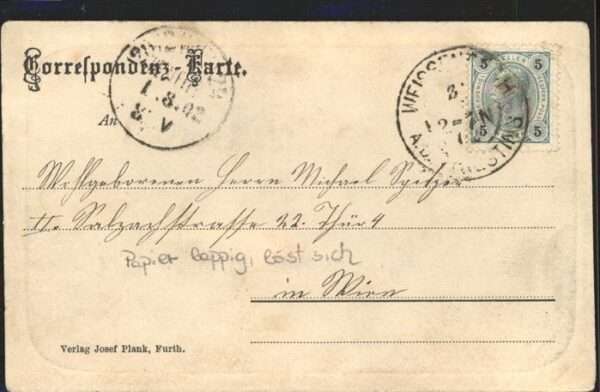 Correspondenz-Karte.
WEISSENBACH
A.D. TRIESTING
5 5
5 5
1.8.02
8 V
An
Wohlgeborenen Herrn Michael Spitzer
II. Salzachstrasse 22. Thür 4
Papier lappig, löst sich
in Wien
Verlag Josef Plank, Furth.